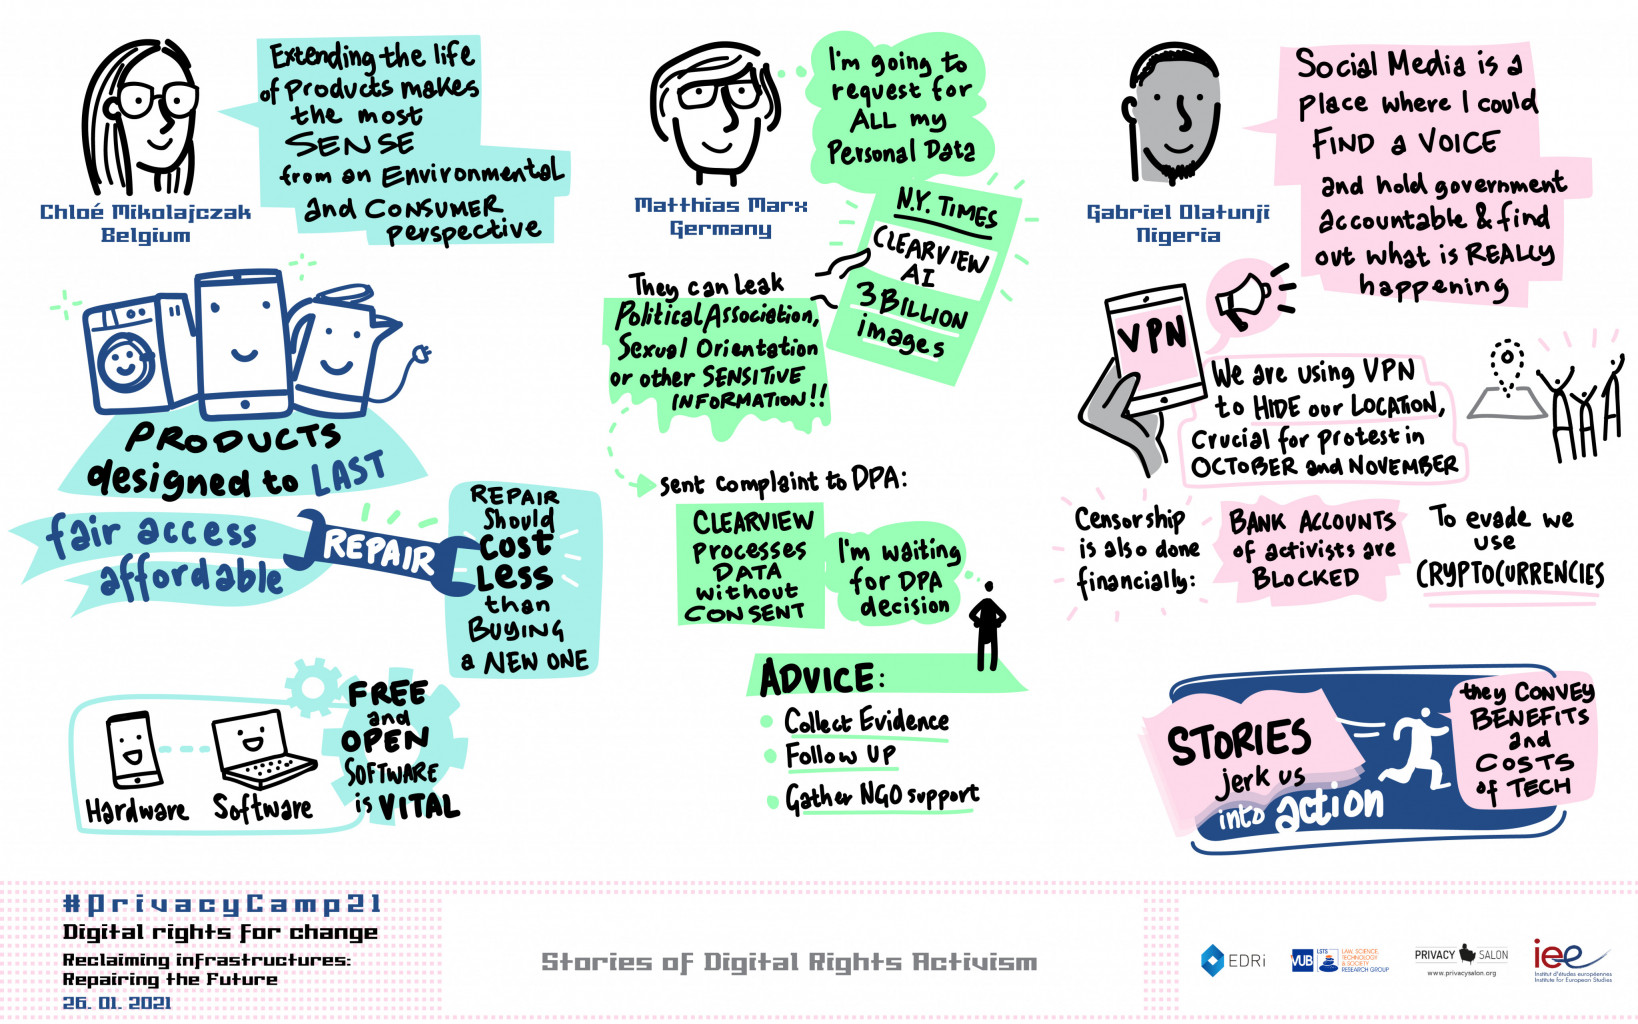 Extending the life
of Products makes
the most
SENSE
from an Environmental
and CONSUMER
perspective
Chloé Mikolajczak
Belgium
PRODUCTS
designed to LAST
fair access
affordable
REPAIR
REPAIR
Should
COST
LESS
than
BUYING
a NEW ONE
Hardware
Software
FREE
and
OPEN
SOFTWARE
is VITAL
Matthias Marx
Germany
I'm going to
request for
ALL my
Personal Data
N.Y. TIMES
CLEARVIEW
AI
3 BILLION
images
They can Leak
Political Association,
Sexual Orientation
or other SENSITIVE
INFORMATION!!
sent complaint to DPA:
CLEARVIEW
PROCESSES
DATA
without
CONSENT
I'm waiting
for DPA
decision
ADVICE:
Collect Evidence
Follow UP
Gather NGO support
Gabriel Olatunji
Nigeria
Social Media is a
place where I could
FIND a VOICE
and hold government
accountable & find
out what is REALLY
happening
VPN
We are using VPN
to HIDE our LOCATION,
Crucial for protest in
OCTOBER and NOVEMBER
Censorship
is also done
financially:
BANK ACCOUNTS
of activists are
BLOCKED
To evade we
use
CRYPTOCURRENCIES
STORIES
jerk us
into action
they CONVEY
BENEFITS
and
COSTS
of TECH
#PrivacyCamp21
Digital rights for change
Reclaiming infrastructures:
Repairing the Future
26. 01. 2021
Stories of Digital Rights Activism
EDRi
VUB
LSTS
LAW, SCIENCE,
TECHNOLOGY
& SOCIETY
RESEARCH GROUP
PRIVACY SALON
www.privacysalon.org
iee
Institut d'études européennes
Institute for European Studies